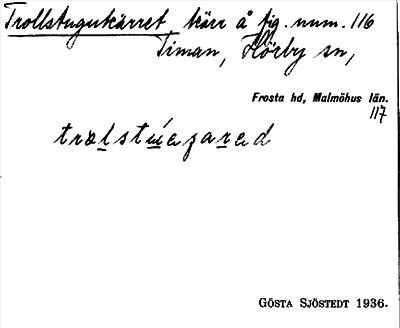 Trollstugukärret, kärr å fig. num. 116
Timan, Hörby sn,
Frosta hd, Malmöhus län.
117
GÖSTA SJÖSTEDT 1936.